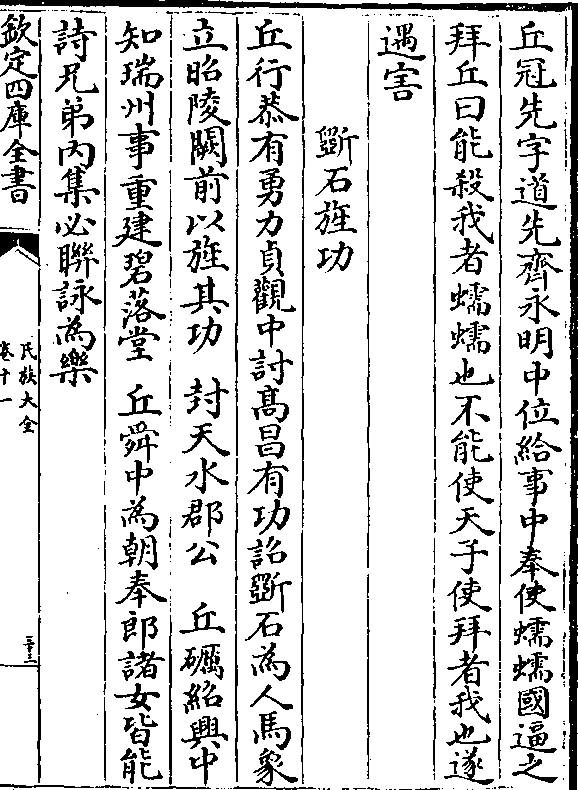 丘冠先字道先齊永明中位給事中奉使蠕蠕國逼之
拜丘曰能殺我者蠕蠕也不能使天子使拜者我也遂
遇害
斲石旌功
丘行恭有勇力貞觀中討髙昌有功詔斲石為人馬象
立昭陵闕前以旌其功 封天水郡公 丘礪紹興中
知瑞州事重建碧落堂 丘舜中為朝奉郎諸女皆能
詩兄弟内集必聯詠為樂
欽定四庫全書
氏族大全
卷十一
三十三